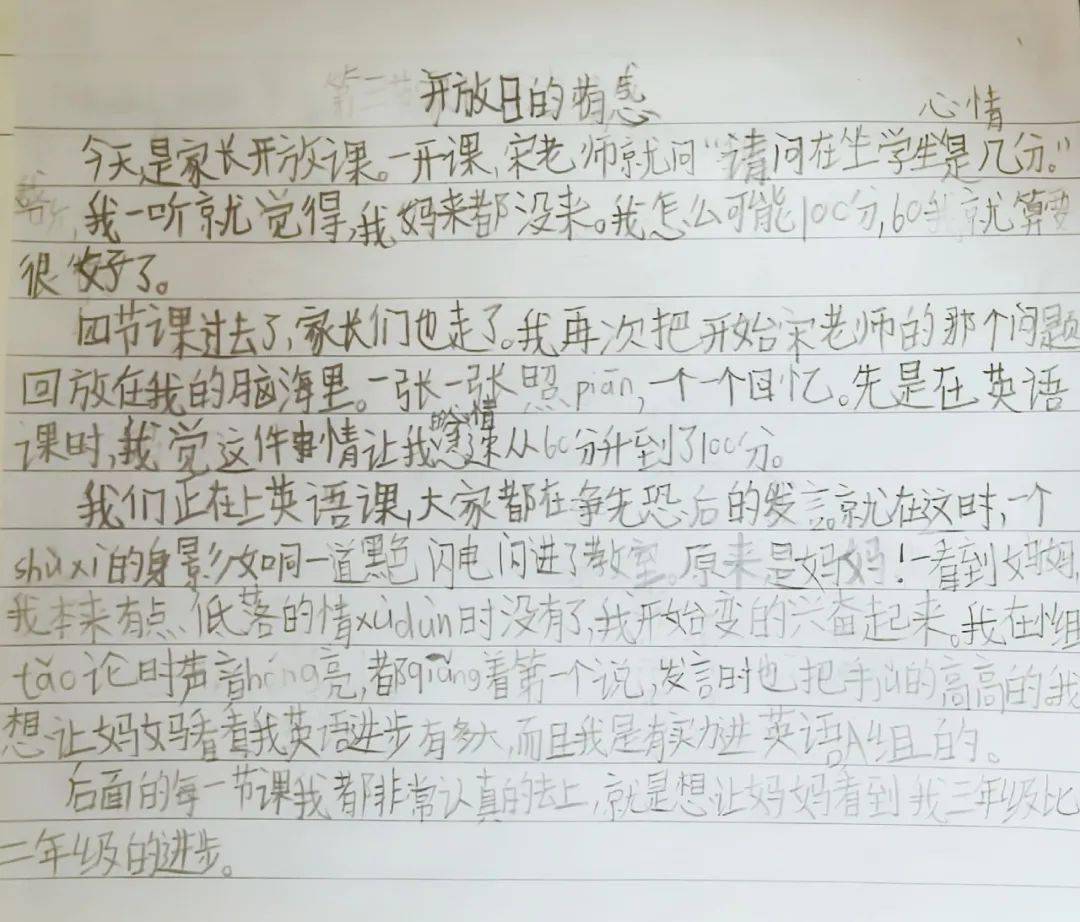 开放日的有感
心情
今天是家长开放课。一开课,宋老师就问“请问在坐学生是几分。”
我一听就觉得,我妈来都没来。我怎么可能100分,60我就算
很好了。
四节课过去了,家长们也走了。我再次把开始宋老师的那个问题
回放在我的脑海里。一张一张照piān,一个一个回忆。先是在英语
的心情
课时,我觉这件事情让我从60分升到了100分。
我们正在上英语课,大家都在争先恐后的发言。就在这时,一个
shúxi的身影女响一道黑色闪电闪进了教室。原来是妈妈!一看到妈妈,
我本来有点低落的情xùdùn时没有了,我开始变的兴奋起来。我在小组
tǎo论时声音hóng亮,都qiǎng着第一个说,发言时也把手的高高的我
想让妈妈看看我英语进步有多大,而且我是有实力进英语A组的。
后面的每一节课我都非常认真的去上,就是想让妈妈看到我三年级比
二年级的进步。